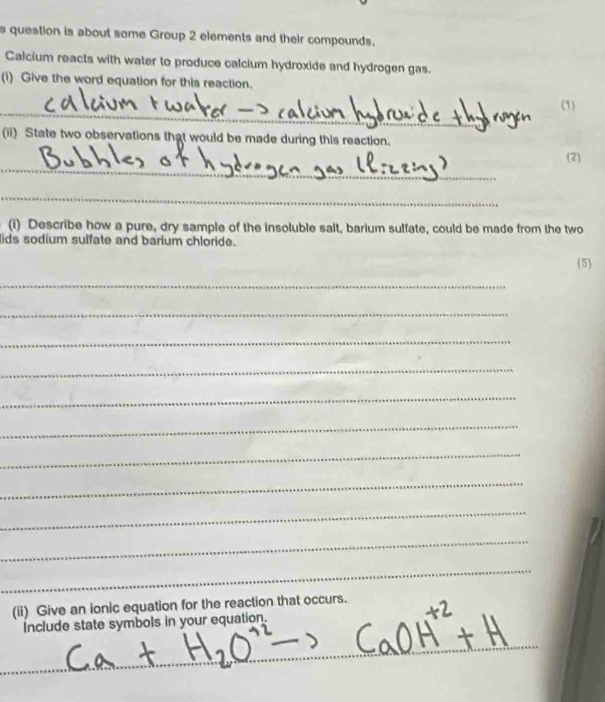 s question is about some Group 2 elements and their compounds.
Calcium reacts with water to produce calcium hydroxide and hydrogen gas.
(i) Give the word equation for this reaction.
(1)
calcium + water -> calcium hydroxide + hydrogen
(ii) State two observations that would be made during this reaction.
(2)
Bubbles of hydrogen gas (fizzing)
(i) Describe how a pure, dry sample of the insoluble salt, barium sulfate, could be made from the two
lids sodium sulfate and barium chloride.
(5)
(ii) Give an ionic equation for the reaction that occurs.
Include state symbols in your equation.
Ca + H₂O⁺² -> CaOH⁺² + H